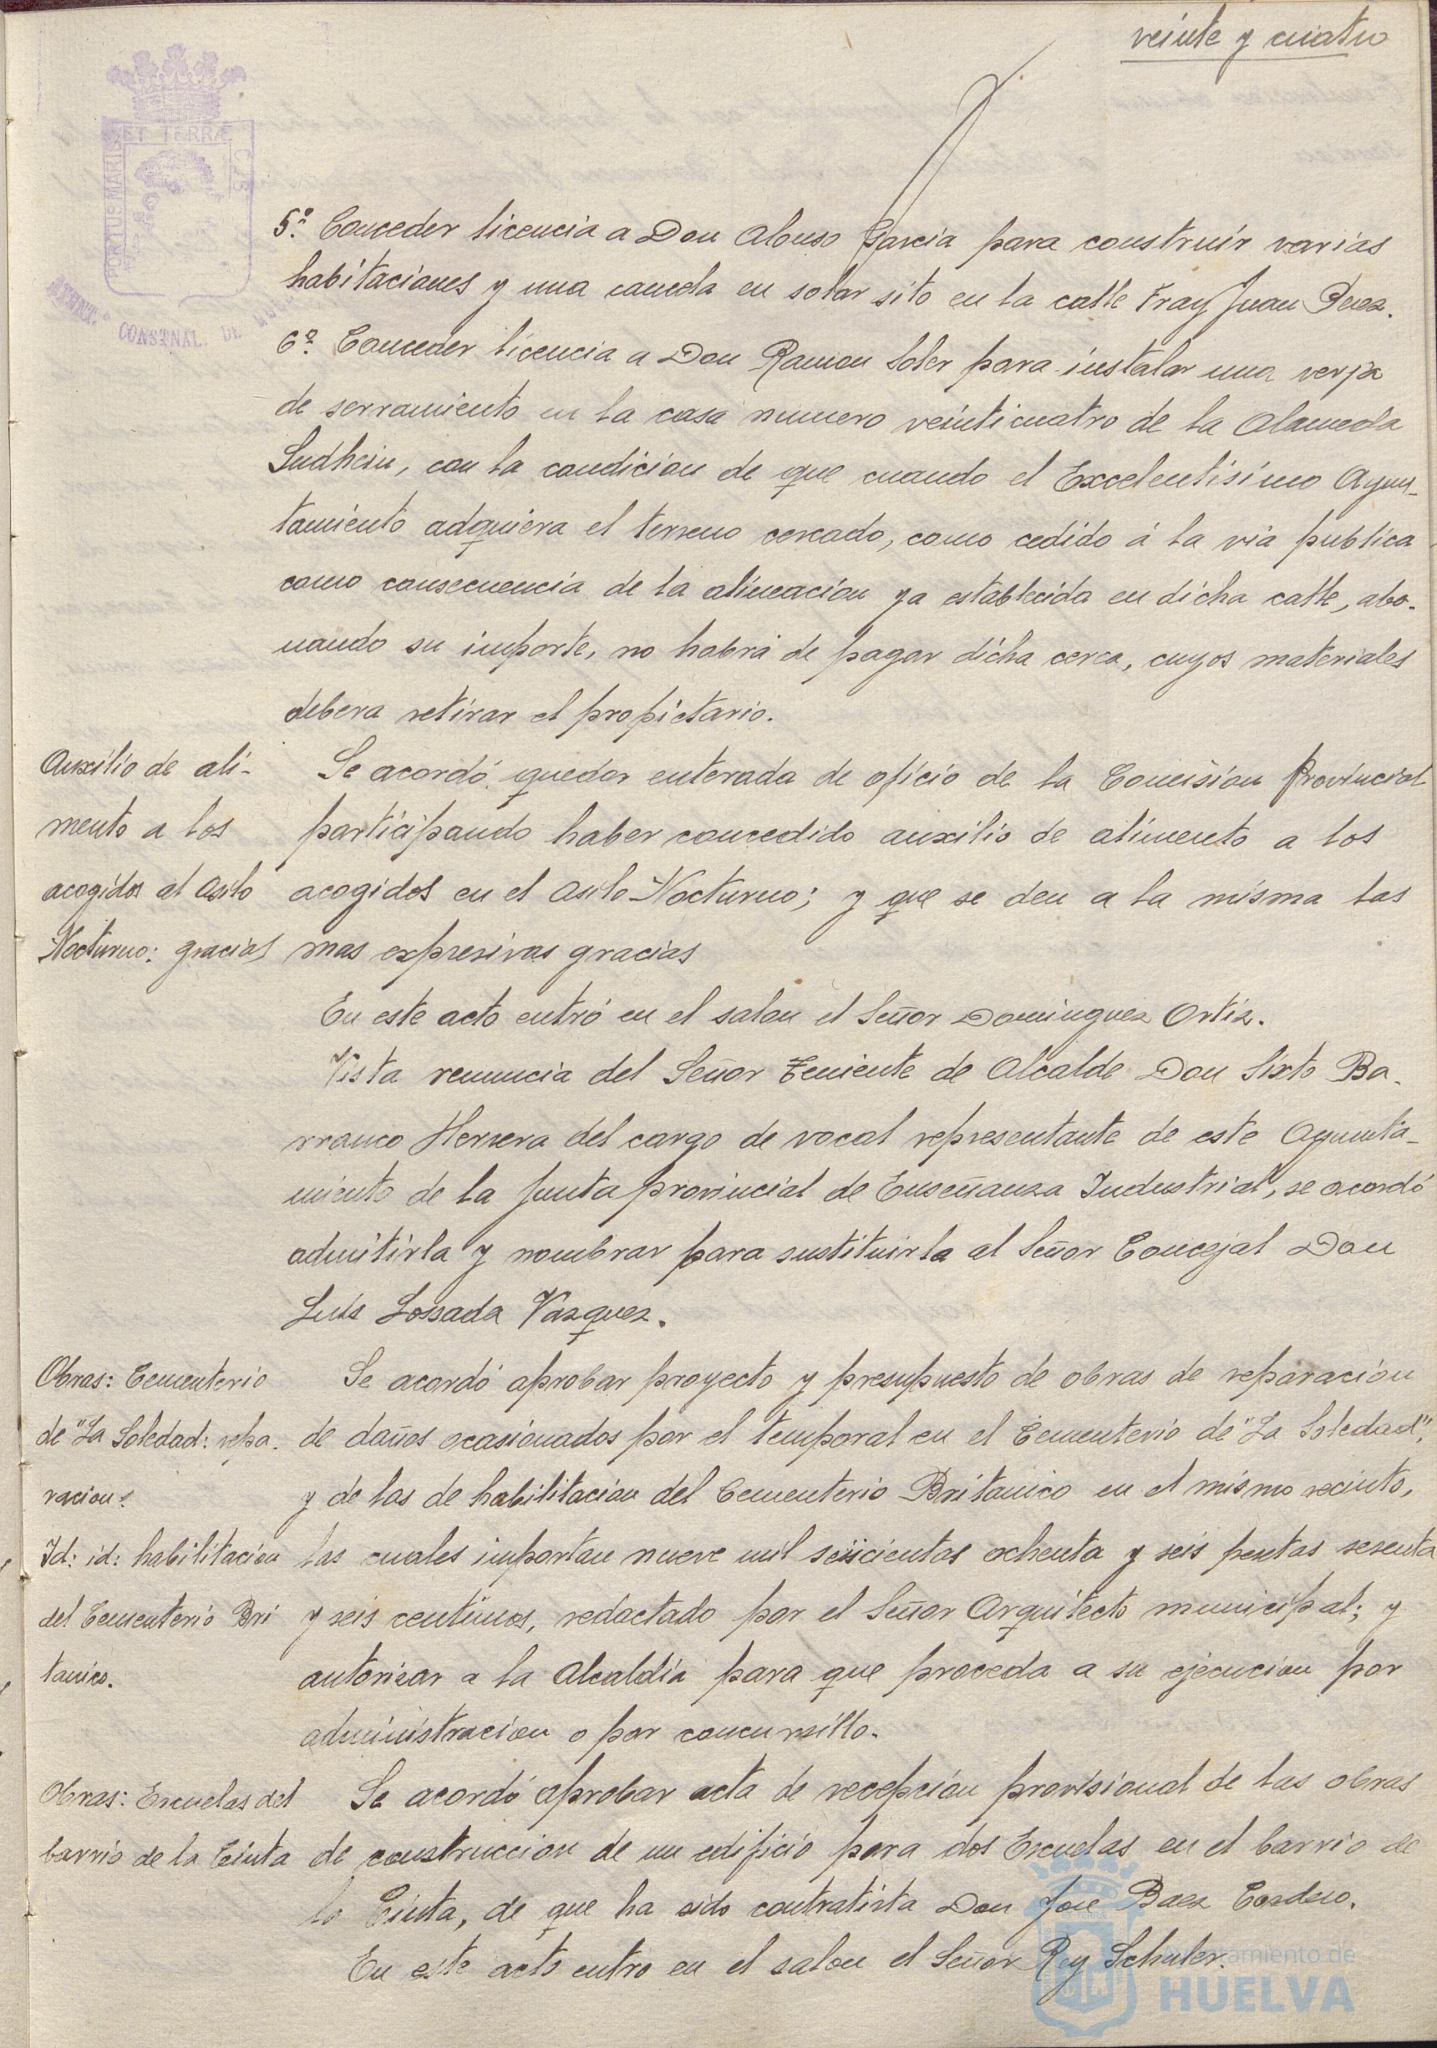 veinte y cuatro
PORTUS MARIS ET TERRÆ CUS
CONSTNAL. DE
5.º Conceder licencia a Don Alonso Garcia para construir varias
habitaciones y una cancela en solar sito en la calle Fray Juan Perez.
6.º Conceder licencia a Don Ramon Soler para instalar una verja
de serramiento en la casa numero veinticuatro de la Alameda
Sudhein, con la condicion de que cuando el Excelentisimo Ayun-
tamiento adquiera el terreno cercado, como cedido á la via publica
como consecuencia de la alineacion ya establecida en dicha calle, abo-
nando su importe, no habrá de pagar dicha cerca, cuyos materiales
debera retirar el propietario.
Auxilio de ali-
mento a los
acogidos al Asilo
Nocturno: gracias
Se acordó quedar enterada de oficio de la Comision Provincial
participando haber concedido auxilio de alimento a los
acogidos en el Asilo Nocturno; y que se den a la misma las
mas expresivas gracias
En este acto entró en el salon el Señor Dominguez Ortiz.
Vista renuncia del Señor Teniente de Alcalde Don Sixto Ba-
rranco Herrera del cargo de vocal representante de este Ayunta-
miento de la Junta provincial de Enseñanza Industrial, se acordó
admitirla y nombrar para sustituirla al Señor Concejal Don
Luis Lossada Vazquez.
Obras: Cementerio
de "La Soledad: repa-
racion.
Id: id: habilitacion
del Cementerio Bri
tanico.
Se acordó aprobar proyecto y presupuesto de obras de reparacion
de daños ocasionados por el temporal en el Cementerio de "La Soledad",
y de las de habilitacion del Cementerio Britanico en el mismo recinto,
las cuales importan nueve mil seiscientas ochenta y seis pesetas sesenta
y seis centimos, redactado por el Señor Arquitecto municipal; y
autorizar a la Alcaldia para que proceda a su ejecucion por
administracion o por concursillo.
Obras: Escuelas del
barrio de la Cinta
Se acordó aprobar acta de recepcion provisional de las obras
de construccion de un edificio para dos Escuelas en el barrio de
la Cinta, de que ha sido contratista Don Jose Baez Cordero.
En este acto entro en el salon el Señor Rey Schuler.
Ayuntamiento de
HUELVA